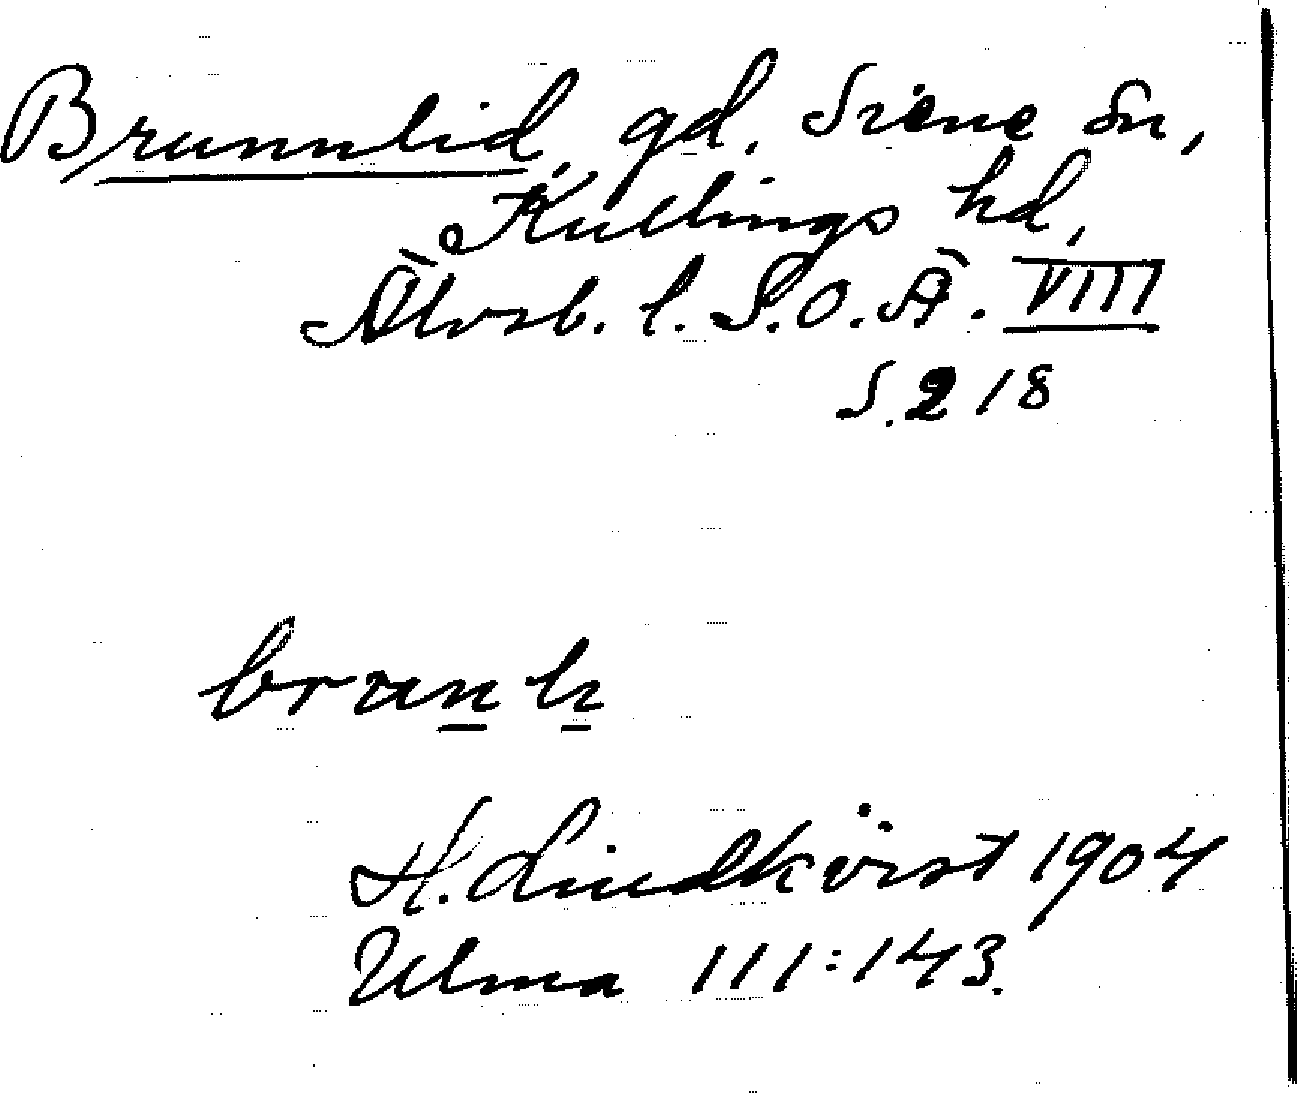 Brunnlid, gd. Siene sn,
Kullings hd,
Älvsb. l. S.O.Ä. VIII
S. 218
H. Lindkvist 1904
Ulma 111:143.